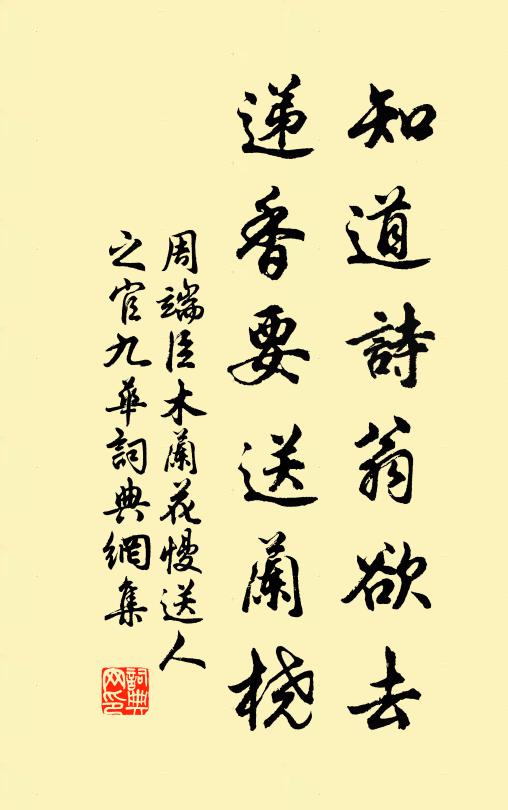 知道詩翁欲去
遞香要送蘭橈
周端臣木蘭花慢送人
之官九華詞典網集
詞典網印